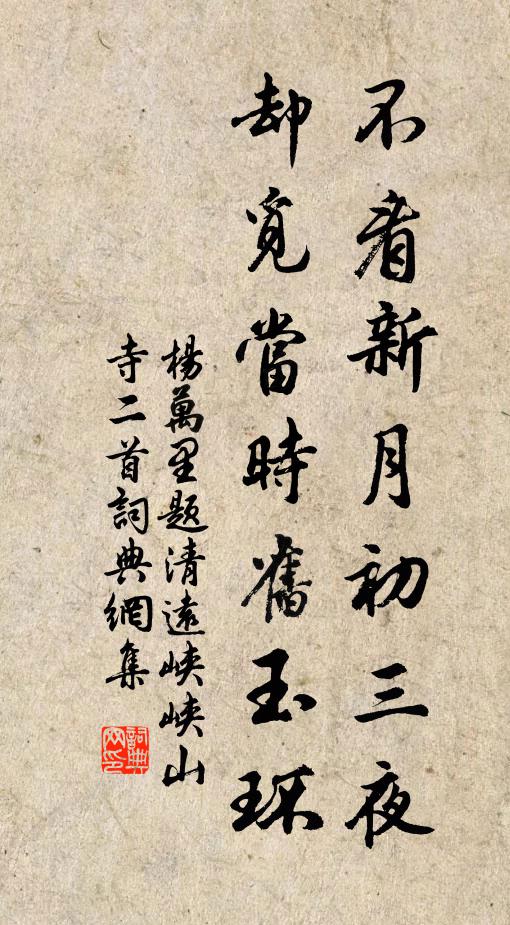 不看新月初三夜
却覓當時舊玉环
楊萬里題清遠峽峽山
寺二首詞典網集
詞典
网印